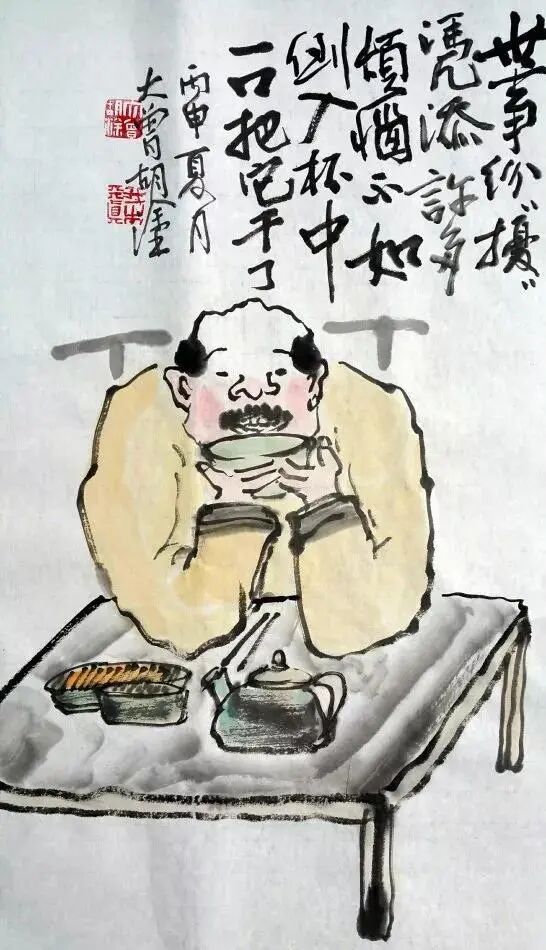 世事纷〻扰〻
凭添许多
烦恼不如
倒入杯中
一口把它干了
丙申夏月
大曾胡涂